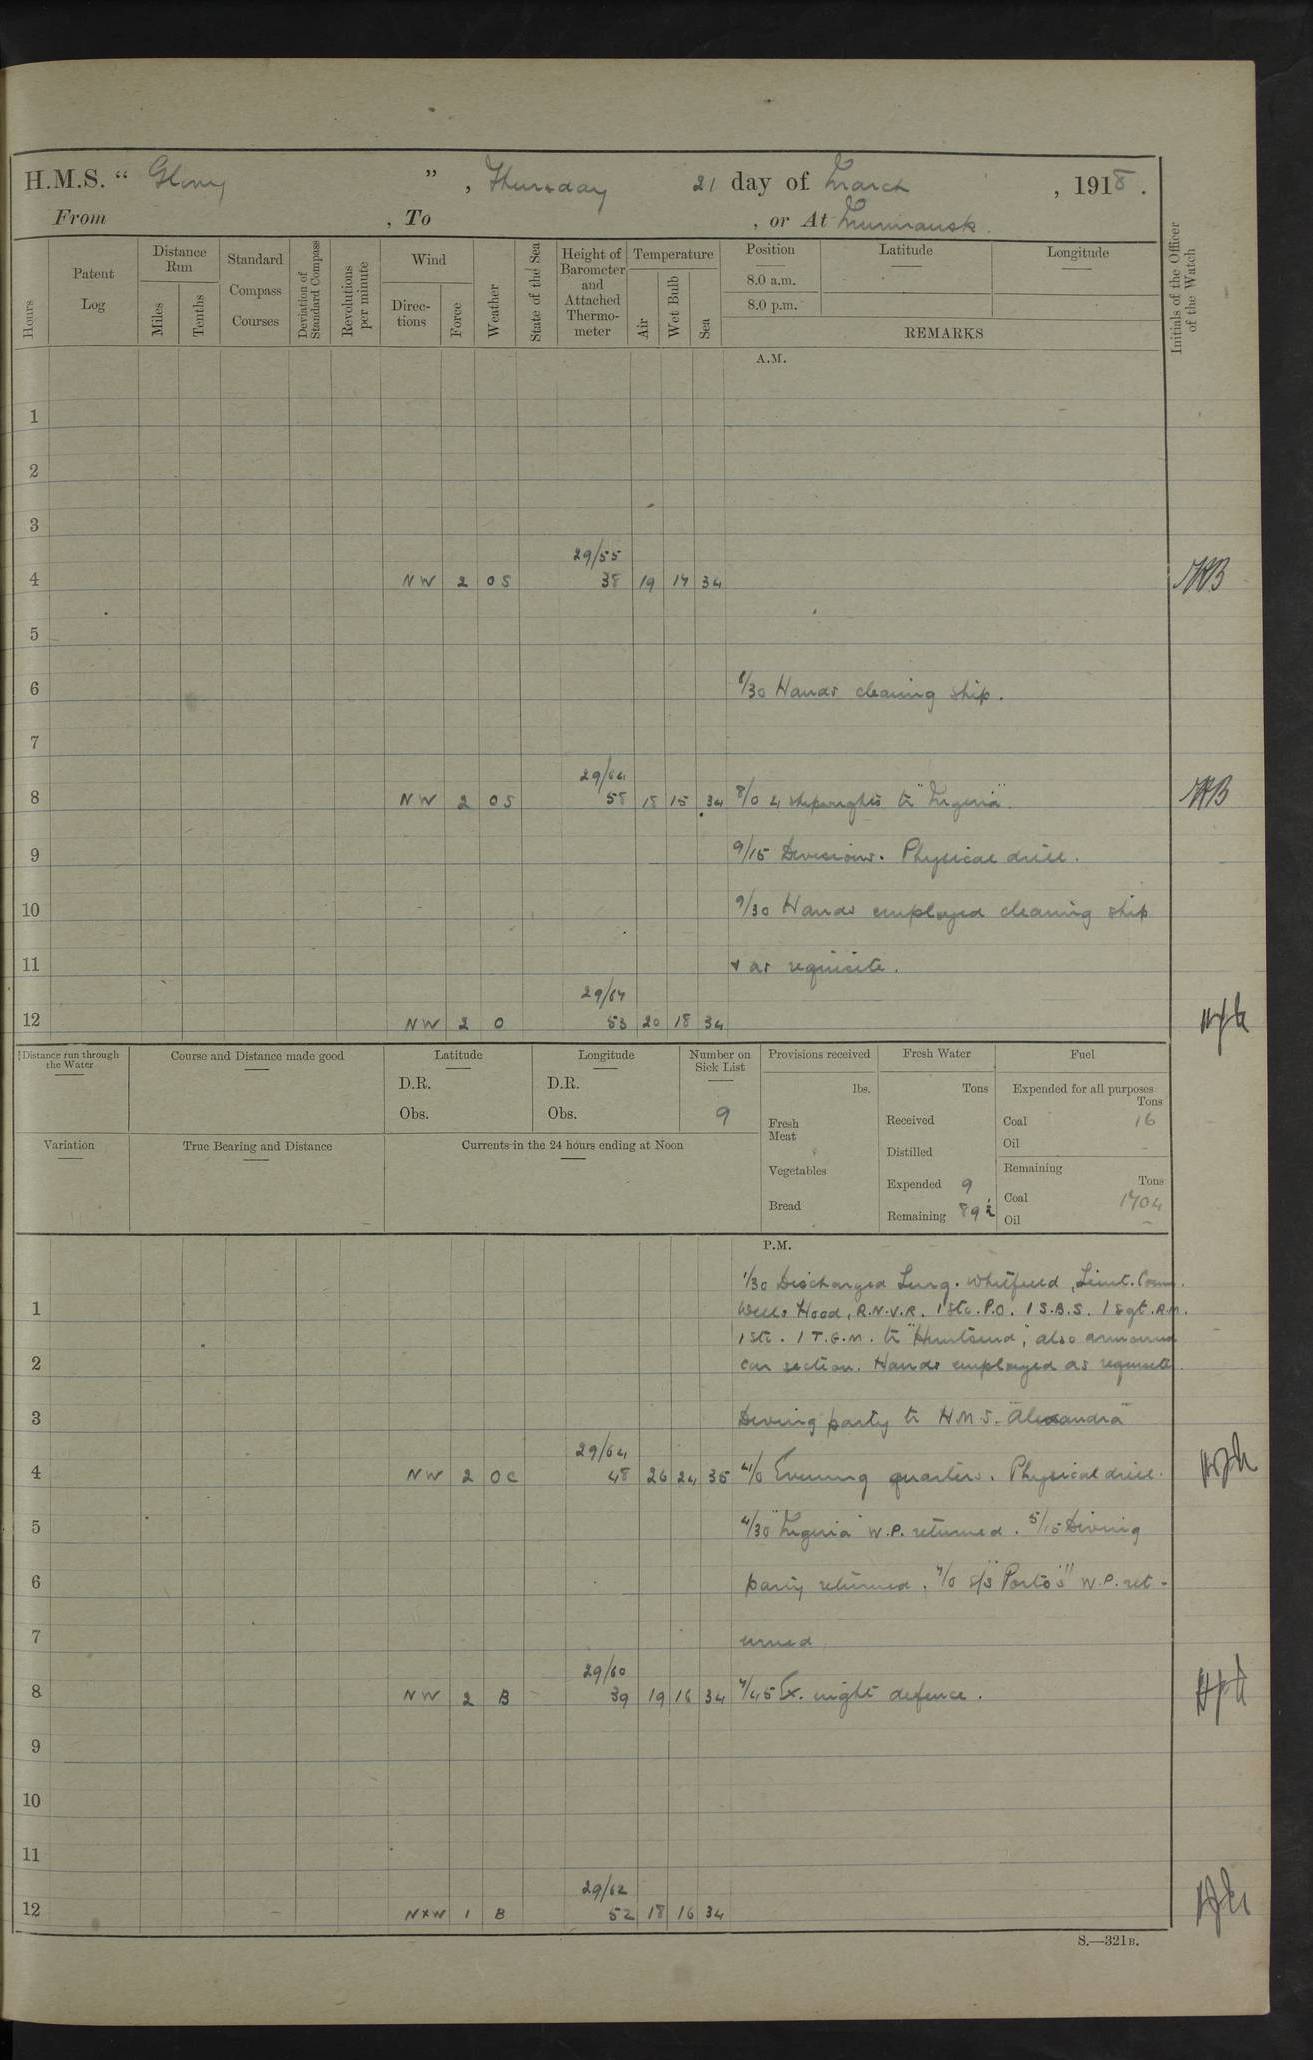 H.M.S. “ Glory ” , Thursday 21 day of March , 1918 .
From , To , or At Murmansk.
Hours
Patent Log
Distance Run
Miles
Tenths
Standard Compass Courses
Deviation of Standard Compass
Revolutions per minute
Wind
Direc-tions
Force
Weather
State of the Sea
Height of Barometer and Attached Thermo-meter
Temperature
Air
Wet Bulb
Sea
Position
8.0 a.m.
8.0 p.m.
Latitude
Longitude
REMARKS
Initials of the Officer of the Watch
A.M.
1
2
3
29/55
4 NW 2 OS 38 19 17 34
5
6 6/30 Hands cleaning ship.
7
29/64
8 NW 2 OS 58 18 15 34 8/0 4 shipwrights to "Nigeria".
9 9/15 Divisions. Physical drill.
10 9/30 Hands employed cleaning ship
11 & as requisite.
29/67
12 NW 2 O 53 20 18 34
Distance run through the Water
Course and Distance made good
Latitude
D.R.
Obs.
Longitude
D.R.
Obs.
Number on Sick List
9
Provisions received
lbs.
Fresh Meat
Vegetables
Bread
Fresh Water
Tons
Received
Distilled
Expended 9
Remaining 89
Fuel
Expended for all purposes
Tons
Coal 16
Oil -
Remaining
Tons
Coal 1704
Oil -
Variation
True Bearing and Distance
Currents in the 24 hours ending at Noon
P.M.
1/30 Discharged Surg. Whitfield, Lieut. Comm.
1 Wells Hood, R.N.V.R. 1 Sto. P.O. 1 S.B.S. 1 Sgt. R.M.
1 Sto. 1 T.G.M. to "Huntsend", also armoured
2 car section. Hands employed as requisite.
3 Diving party to H.M.S. "Alexandra"
29/64
4 NW 2 OC 48 26 24 35 4/0 Evening quarters. Physical drill.
5 4/30 "Nigeria" W.P. returned. 5/15 Diving
6 party returned. 7/0 S/S "Porto's" W.P. ret-
7 urned
29/60
8 NW 2 B 39 19 16 34 7/45 Ex. night defence.
9
10
11
29/62
12 NxW 1 B 52 18 16 34
S.—321B.